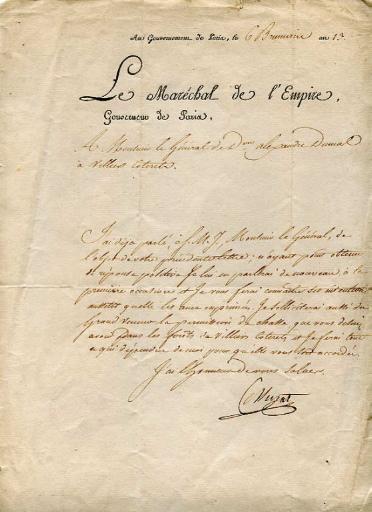 Au Gouvernement de Paris, le 6 Brumaire an 13
Le Maréchal de l'Empire,
Gouverneur de Paris,
A Monsieur le Général de Don alexandre Dumas
à Villers Coterets.
J'ai déja parlé, à S. M. I., Monsieur le Général, de
l'objet de votre précédente lettre; n'ayant point obtenu
de réponse positive Je lui en parlerai de nouveau, à la
première occasion et Je vous ferai connaitre ses intentions
aussitot qu'elle les aura exprimées. Je solliciterai aussi du
Grand Veneur la permission de chasse que vous desirez
avoir dans les forêts de Villers Coterets et Je ferai tout
ce qui dépendra de moi pour qu'elle vous soit accordée.
J'ai l'honneur de vous Saluer.
Murat